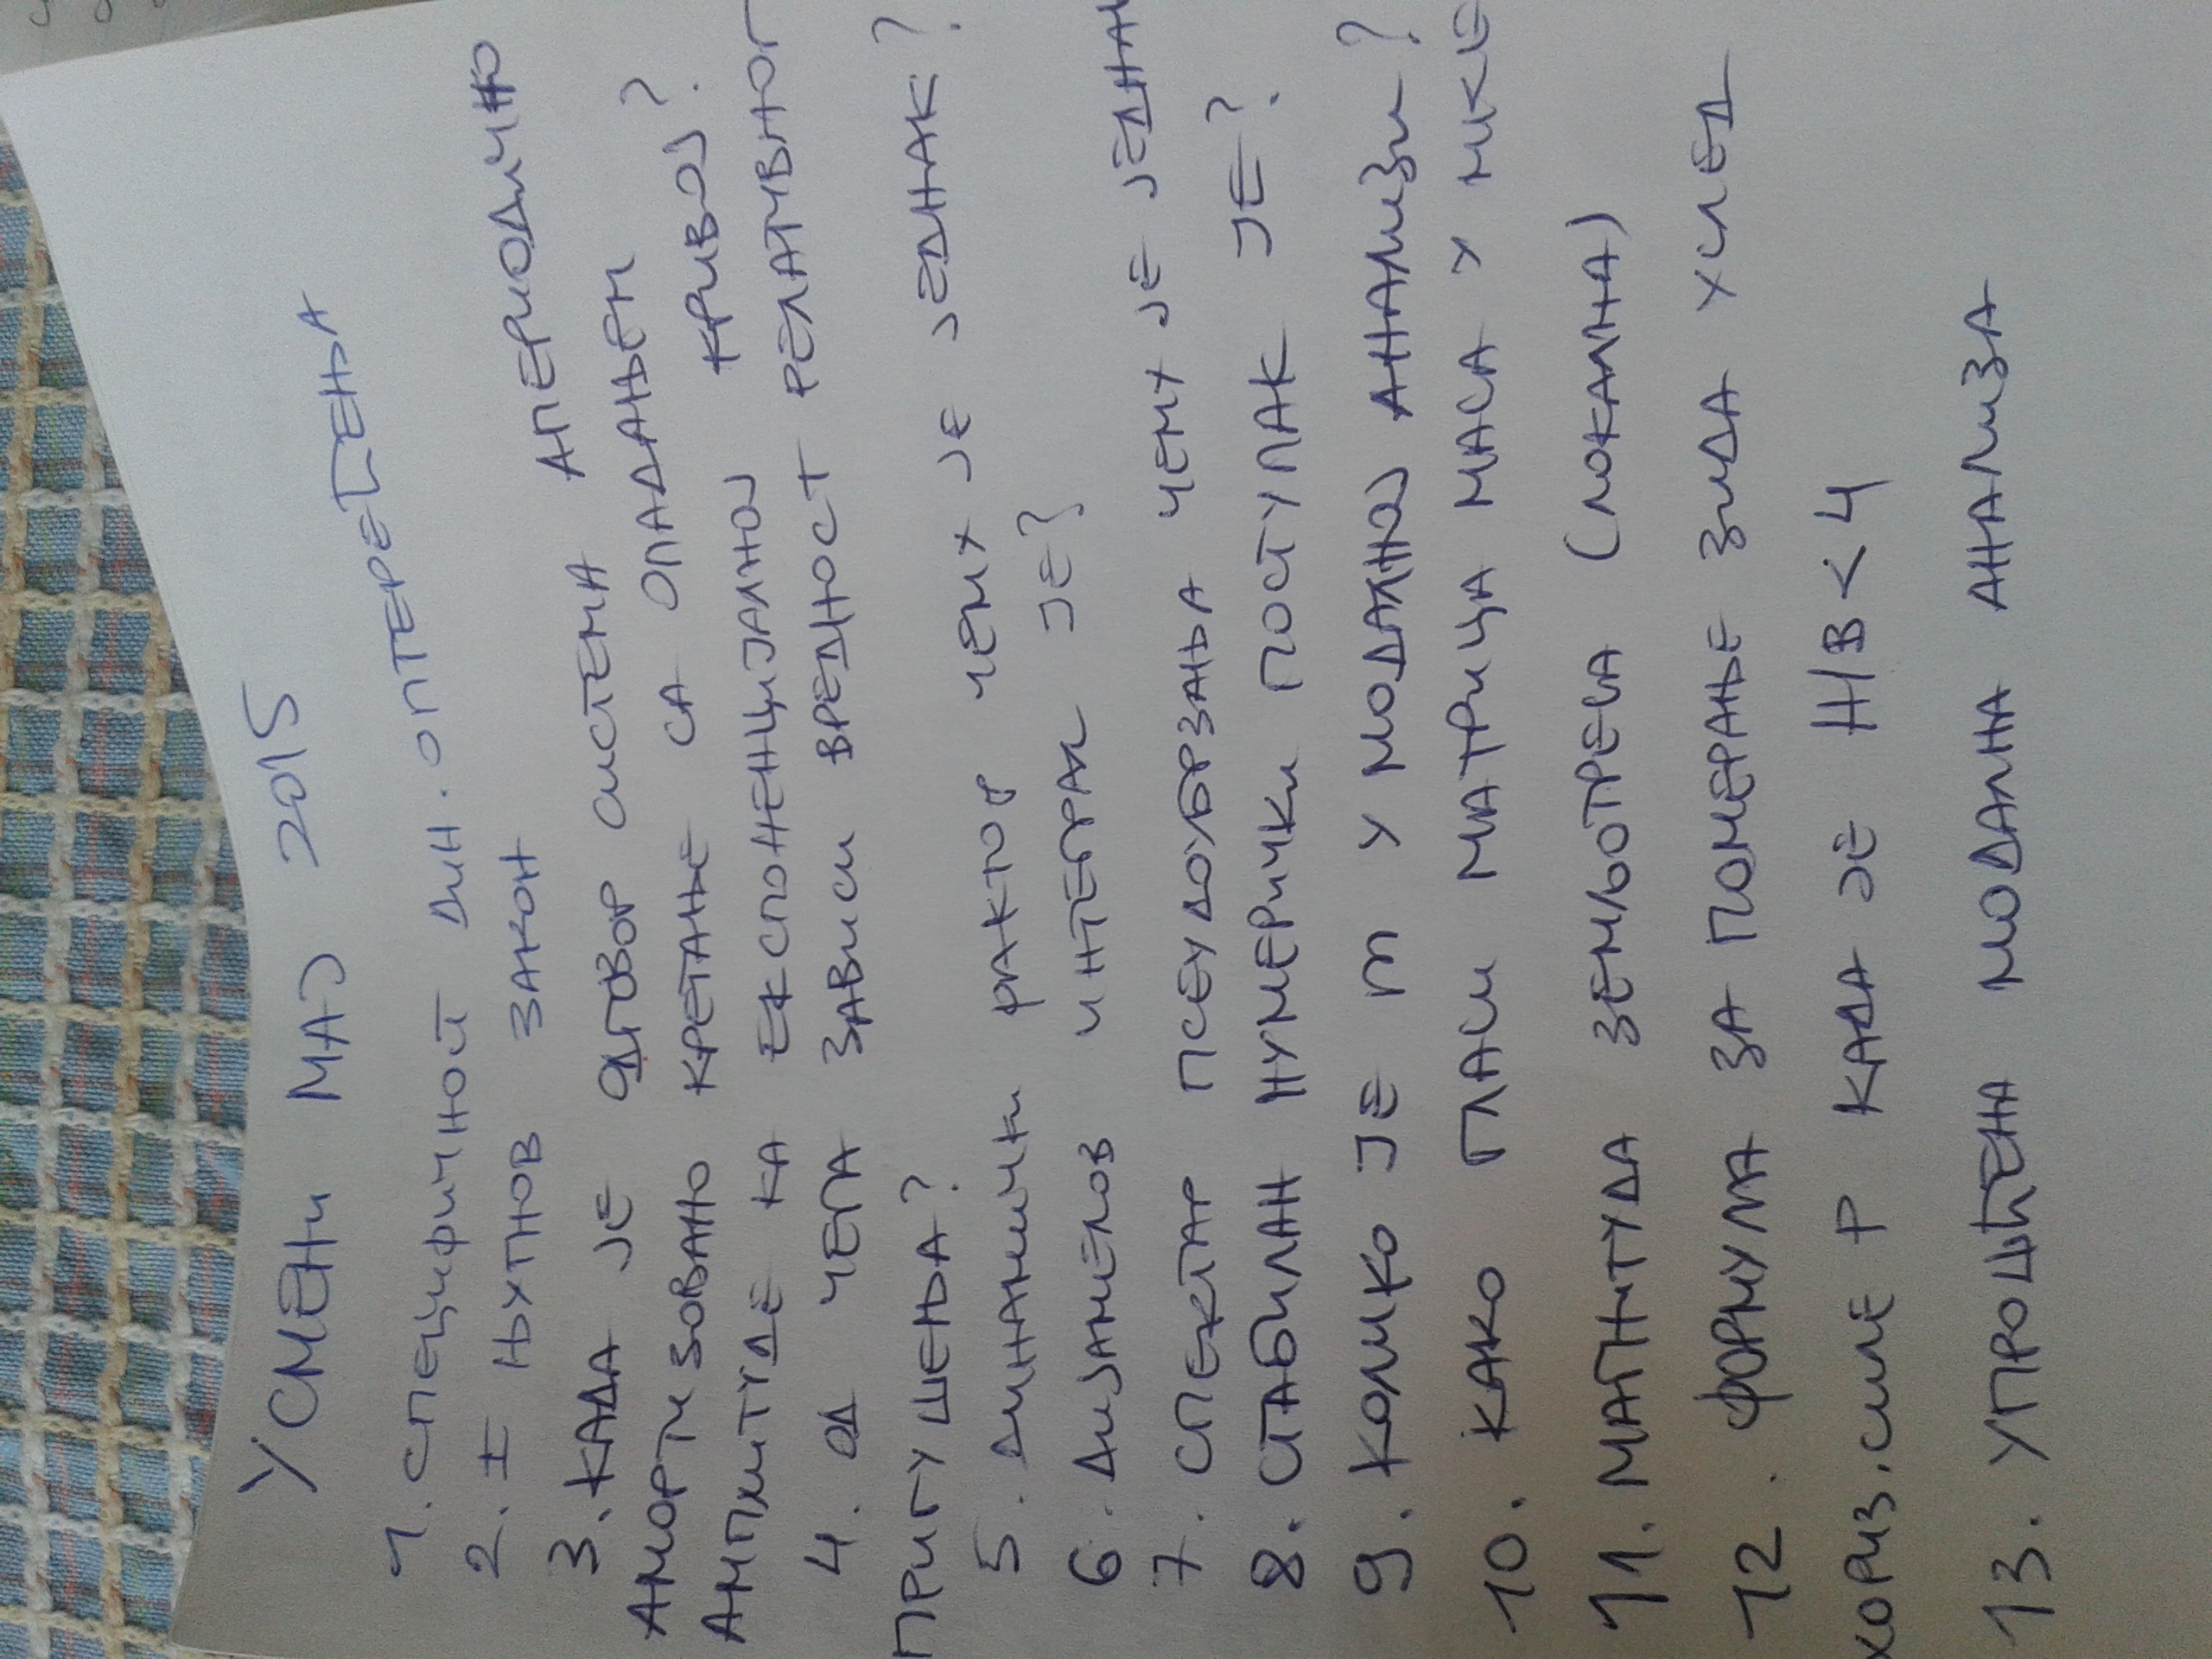 УСМЕНИ МАЈ 2015
1. СПЕЦИФИЧНОСТ ДИН. ОПТЕРЕЋЕЊА
2. I ЊУТНОВ ЗАКОН
3. КАДА ЈЕ ОДГОВОР СИСТЕМА АПЕРИОДИЧНО
АМОРТИЗОВАНО КРЕТАЊЕ СА ОПАДАЊЕМ
АМПЛИТУДЕ КА ЕКСПОНЕНЦИЈАЛНОЈ КРИВОЈ?
4. ОД ЧЕГА ЗАВИСИ ВРЕДНОСТ РЕЛАТИВНОГ
ПРИГУШЕЊА?
5. ДИНАМИЧКИ ФАКТОР ЧЕМУ ЈЕ ЈЕДНАК?
6. ДИЈАМЕЛОВ ИНТЕГРАЛ ЈЕ?
7. СПЕКТАР ПСЕУДОУБРЗАЊА ЧЕМУ ЈЕ ЈЕДНАК
8. СТАБИЛАН НУМЕРИЧКИ ПОСТУПАК ЈЕ?
9. КОЛИКО ЈЕ m У МОДАЛНОЈ АНАЛИЗИ?
10. КАКО ГЛАСИ МАТРИЦА МАСА У МКЕ
11. МАГНИТУДА ЗЕМЉОТРЕСА (ЛОКАЛНА)
12. ФОРМУЛА ЗА ПОМЕРАЊЕ ЗИДА УСЛЕД
ХОРИЗ. СИЛЕ P КАДА ЈЕ H/B < 4
13. УПРОШЋЕНА МОДАЛНА АНАЛИЗА